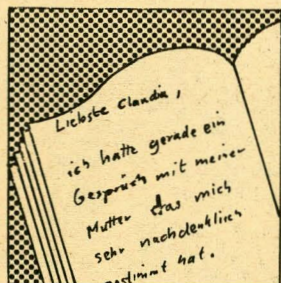 Liebste Claudia,
ich hatte gerade ein
Gespräch mit meiner
Mutter das mich
sehr nachdenklich
gestimmt hat.